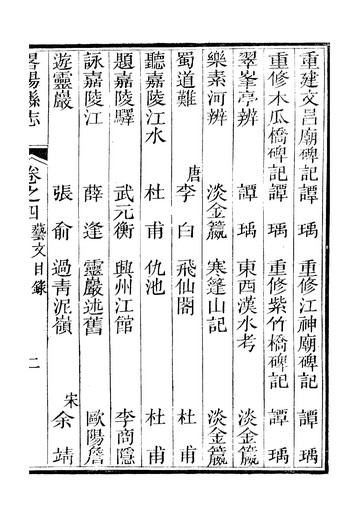 重建文昌廟碑記 譚瑀 重修江神廟碑記 譚瑀
重修木瓜橋碑記 譚瑀 重修紫竹橋碑記 譚瑀
翠峯亭辨 譚瑀 東西漢水考 淡金籯
樂素河辨 淡金籯 寒篷山記 淡金籯
蜀道難 唐李白 飛仙閣 杜甫
聽嘉陵江水 杜甫 仇池 杜甫
題嘉陵驛 武元衡 興州江館 李商隱
詠嘉陵江 薛逢 靈巖述舊 歐陽詹
遊靈巖 張俞 過青泥嶺 宋余靖
畧陽縣志 卷之四 藝文目錄 二